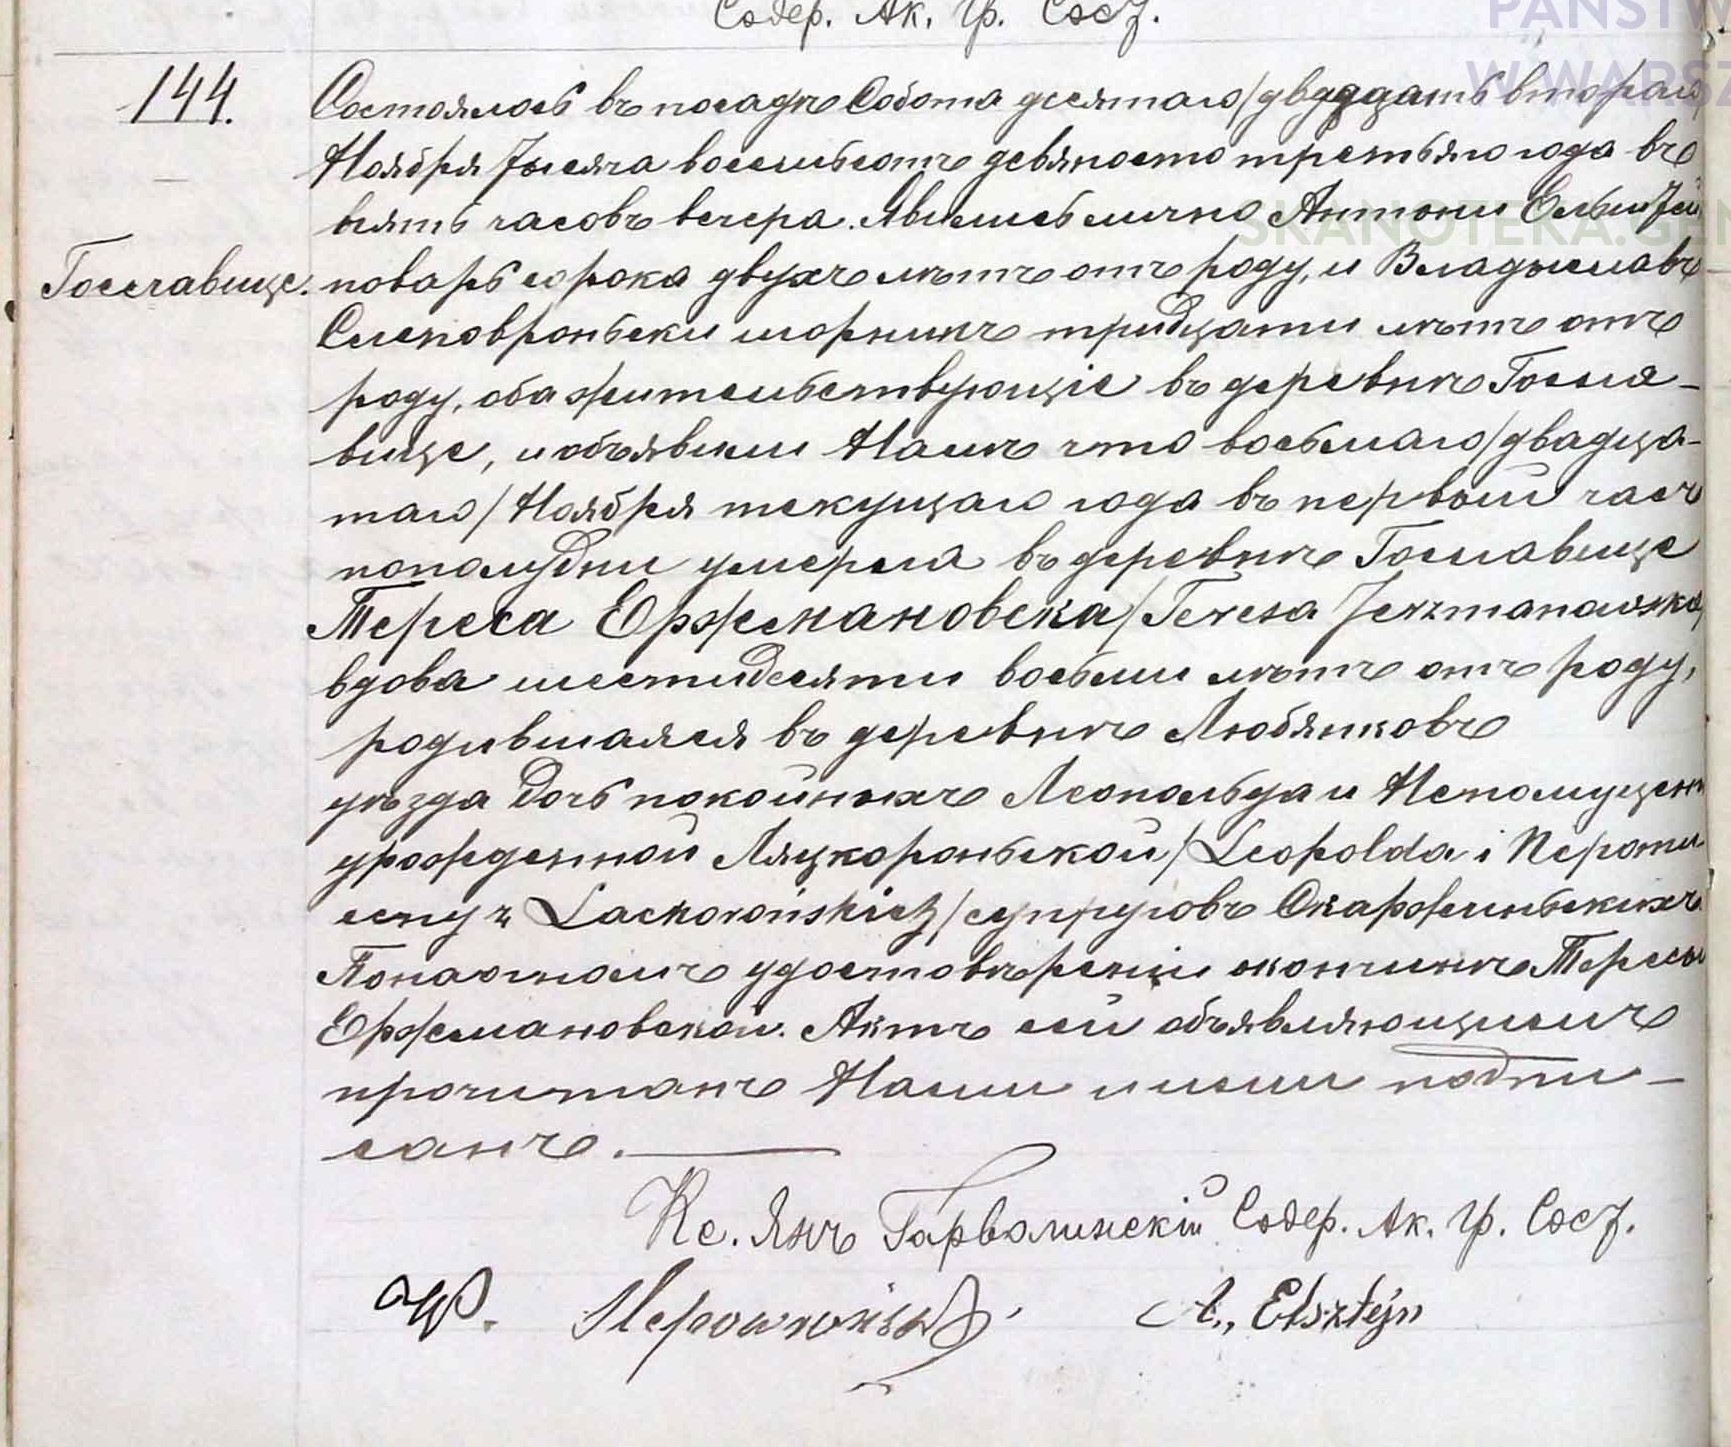 Содер. Ак. Гр. Сост.
PAŃSTW
W WARSZ
SKANOTEKA.GEN
144.
Состоялось въ посадѣ Собота десятаго/двадцать втораго
Ноября Тысяча восемьсотъ девяносто третьяго года въ
часовъ вечера. Явились лично Антони Ельштейн
Гославице. поваръ сорока двухъ лѣтъ отъ роду, и Владыславъ
Слеповроньски шорникъ тридцати лѣтъ отъ
роду, оба жительствующіе въ деревнѣ Госла-
вице, и объявили Намъ что восьмаго/двадца-
таго/Ноября текущаго года въ первый часъ
пополудни умерла въ деревнѣ Гославице
Тереса Ержмановска/Teresa Jerzmanowska/
вдова шестидесяти восьми лѣтъ отъ роду,
родившаяся въ деревнѣ Любянковъ
уѣзда дочь покойныхъ Леопольда и Непомуцены
урожденной Ляцкороньской/Leopolda i Nepomu
ceny z Lackorońskich/супруговъ Скаржиньскихъ.
По настномъ удостовѣреніи окончинѣ Тересы
Ержмановской. Актъ сей объявляющимъ
прочитанъ Нами и ими подпи-
санъ.
Кс. Янъ Гарволинскій Содер. Ак. Гр. Сост.
W.
A. Elsztejn